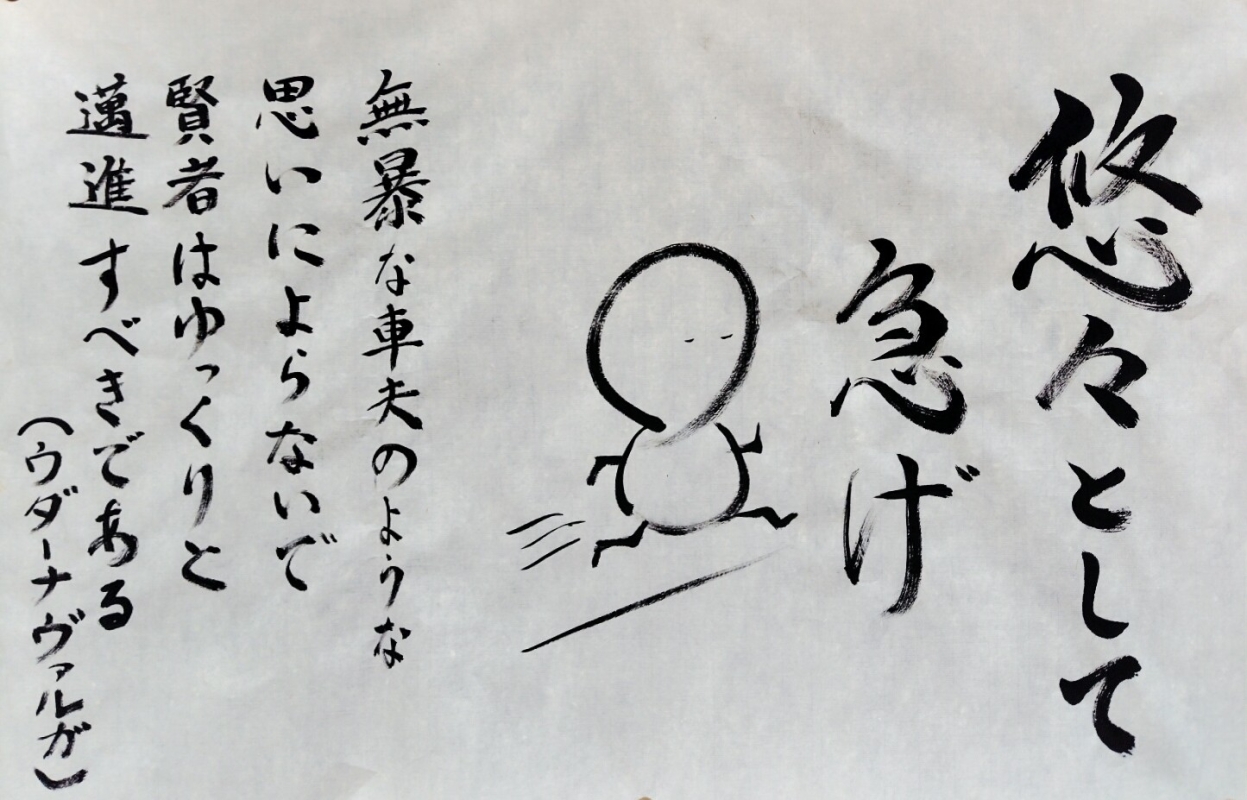 悠々として
急げ
無暴な車夫のような
思いによらないで
賢者はゆっくりと
邁進すべきである
（ウダーナヴァルガ）